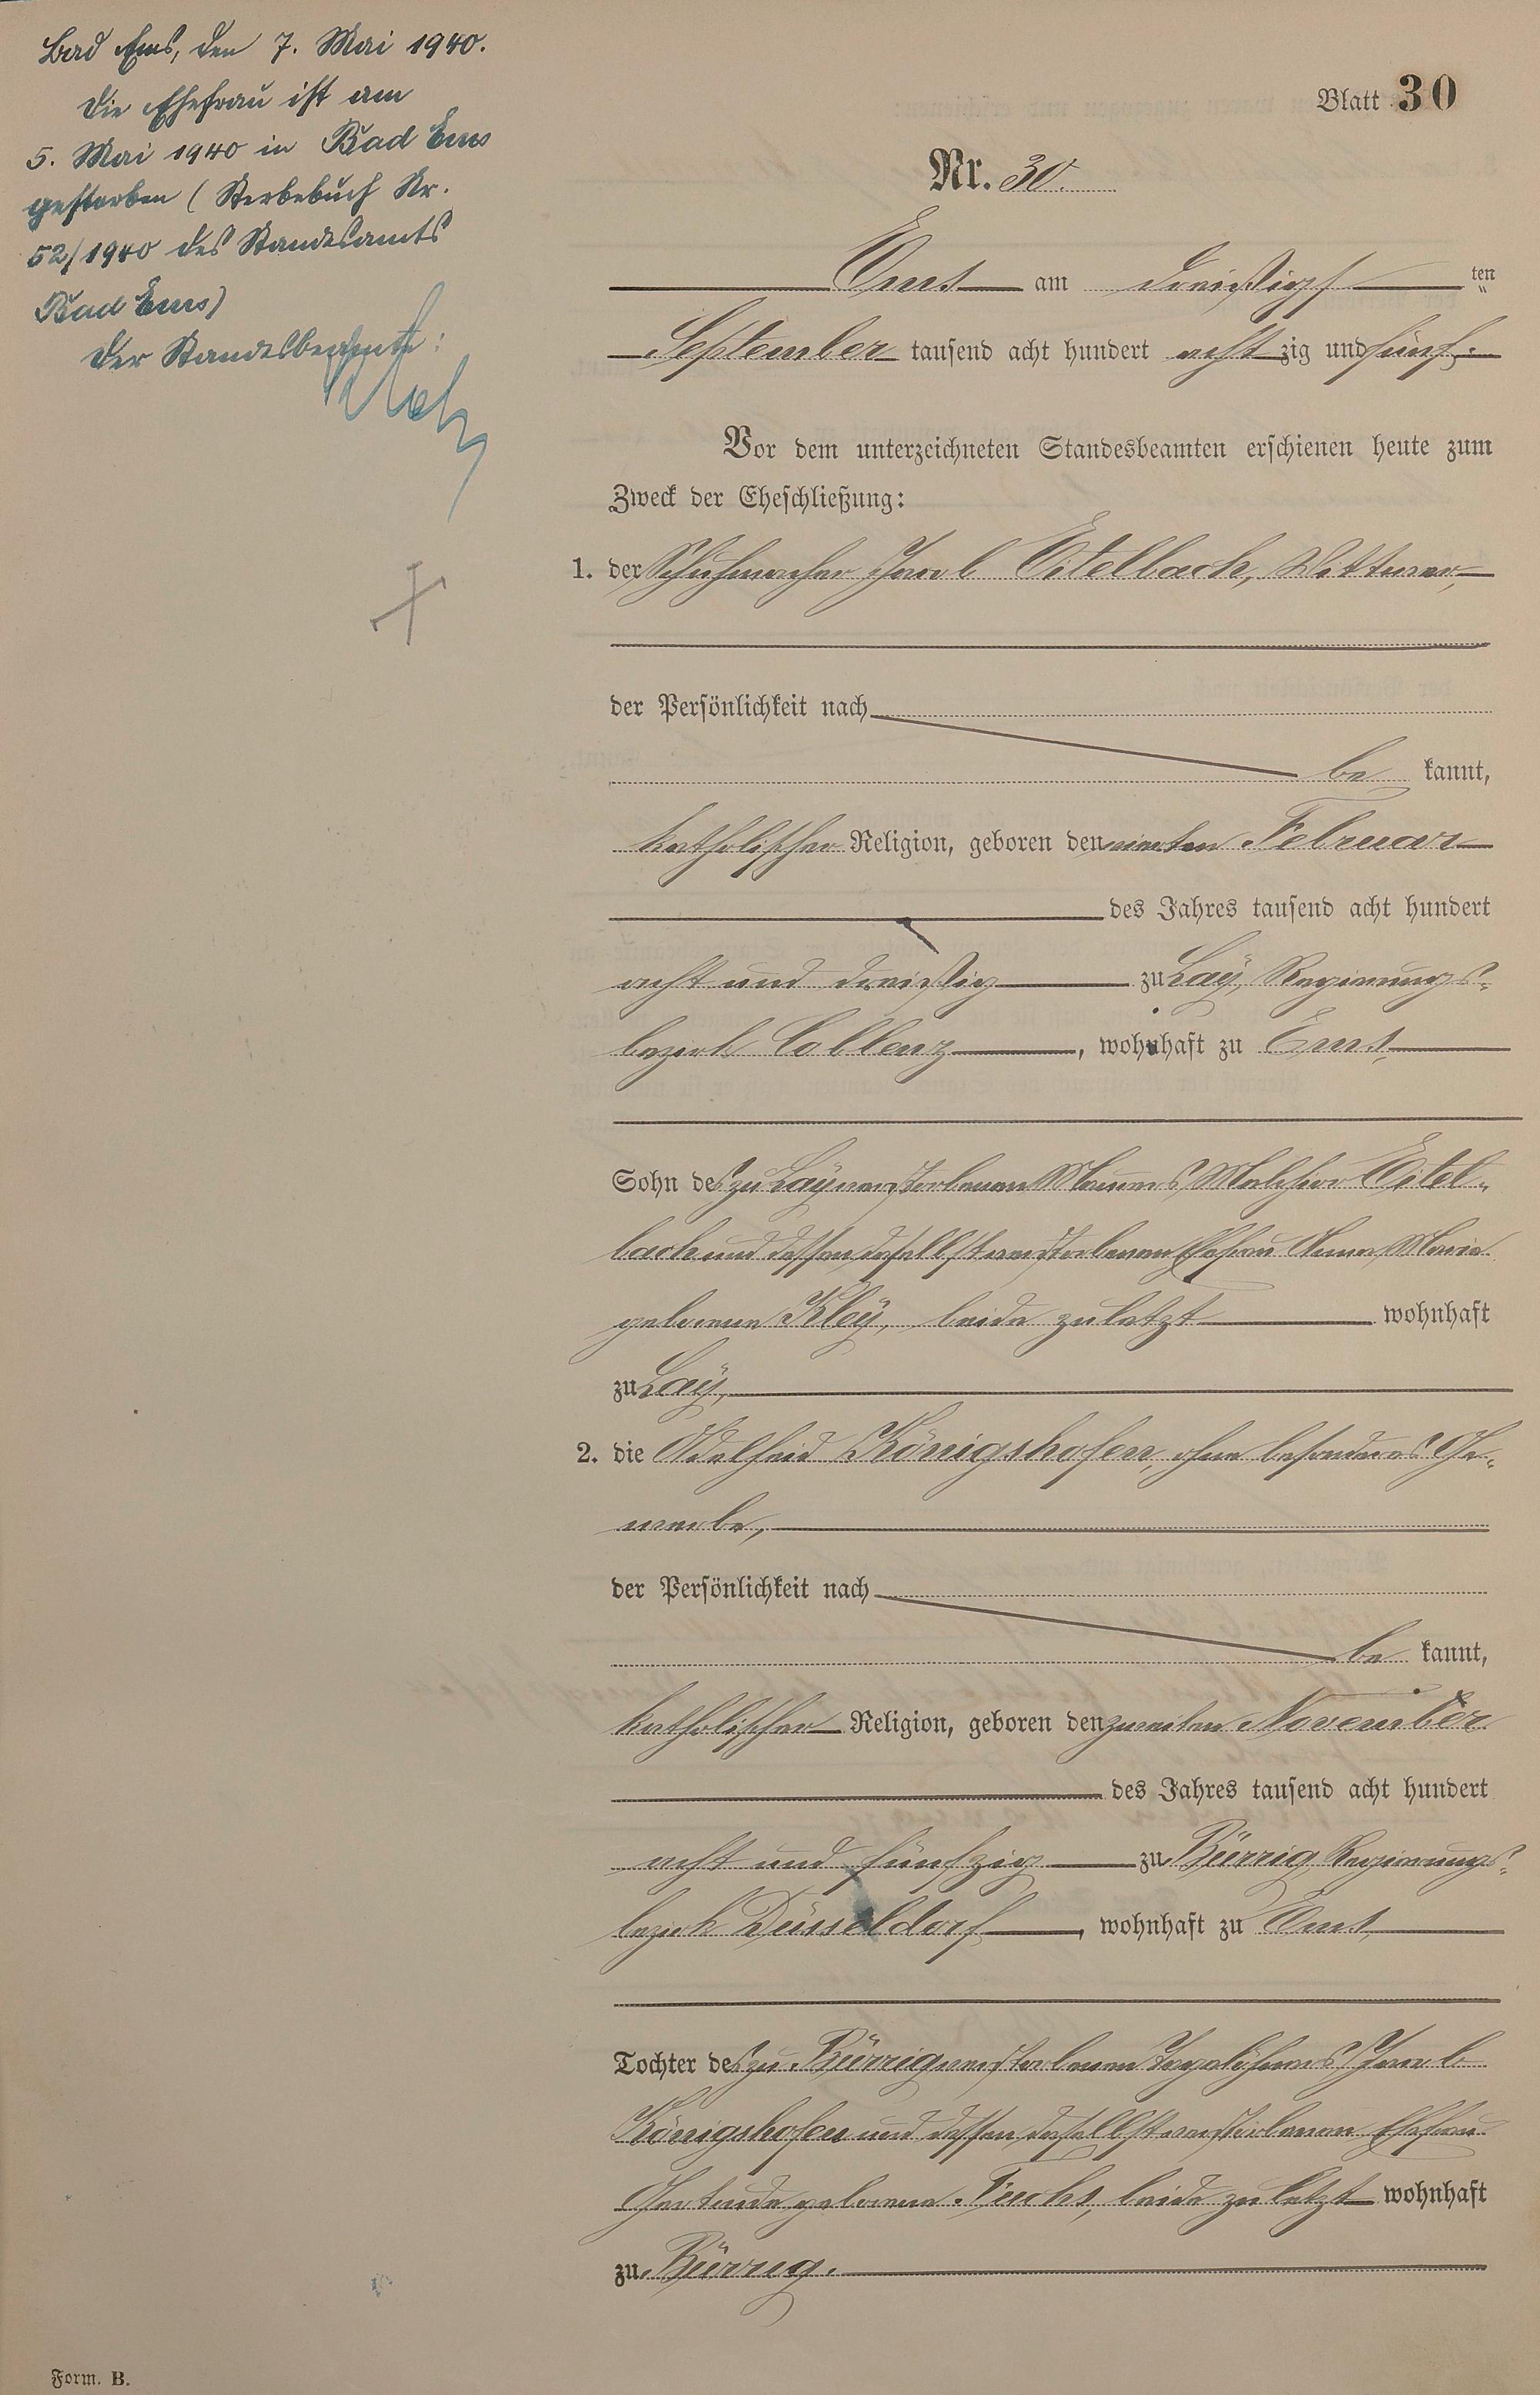 Bad Ems, den 7. Mai 1940.
Die Ehefrau ist am
5. Mai 1940 in Bad Ems
gestorben (Sterbebuch Nr.
52/1940 des Standesamts
Bad Ems)
Der Standesbeamte:
Blatt 30
Nr. 30.
Ems am dreißigsten
September tausend acht hundert achtzig und fünf.
Vor dem unterzeichneten Standesbeamten erschienen heute zum
Zweck der Eheschließung:
1. der Schuhmacher Jacob Eitelbach, Wittwer,
der Persönlichkeit nach
be kannt,
katholischer Religion, geboren den vierten Februar
des Jahres tausend acht hundert
acht und dreißig zu Lay, Regierungs-
bezirk Coblenz, wohnhaft zu Ems,
Sohn des zu Lay verstorbenen Maurers Melchior Eitel-
bach und dessen daselbst verstorbenen Ehefrau Anna Maria
geborene Kley, beide zuletzt wohnhaft
zu Lay,
2. die Adelheid Königshofen, ohne besonderes Ge-
werbe,
der Persönlichkeit nach
be kannt,
katholischer Religion, geboren den zweiten November
des Jahres tausend acht hundert
acht und fünfzig zu Bürrig, Regierungs-
bezirk Düsseldorf, wohnhaft zu Ems,
Tochter des zu Bürrig verstorbenen Tagelöhners Jacob
Königshofen und dessen daselbst verstorbenen Ehefrau
Gertrude geborene Fuchs, beide zuletzt wohnhaft
zu Bürrig.
Form. B.